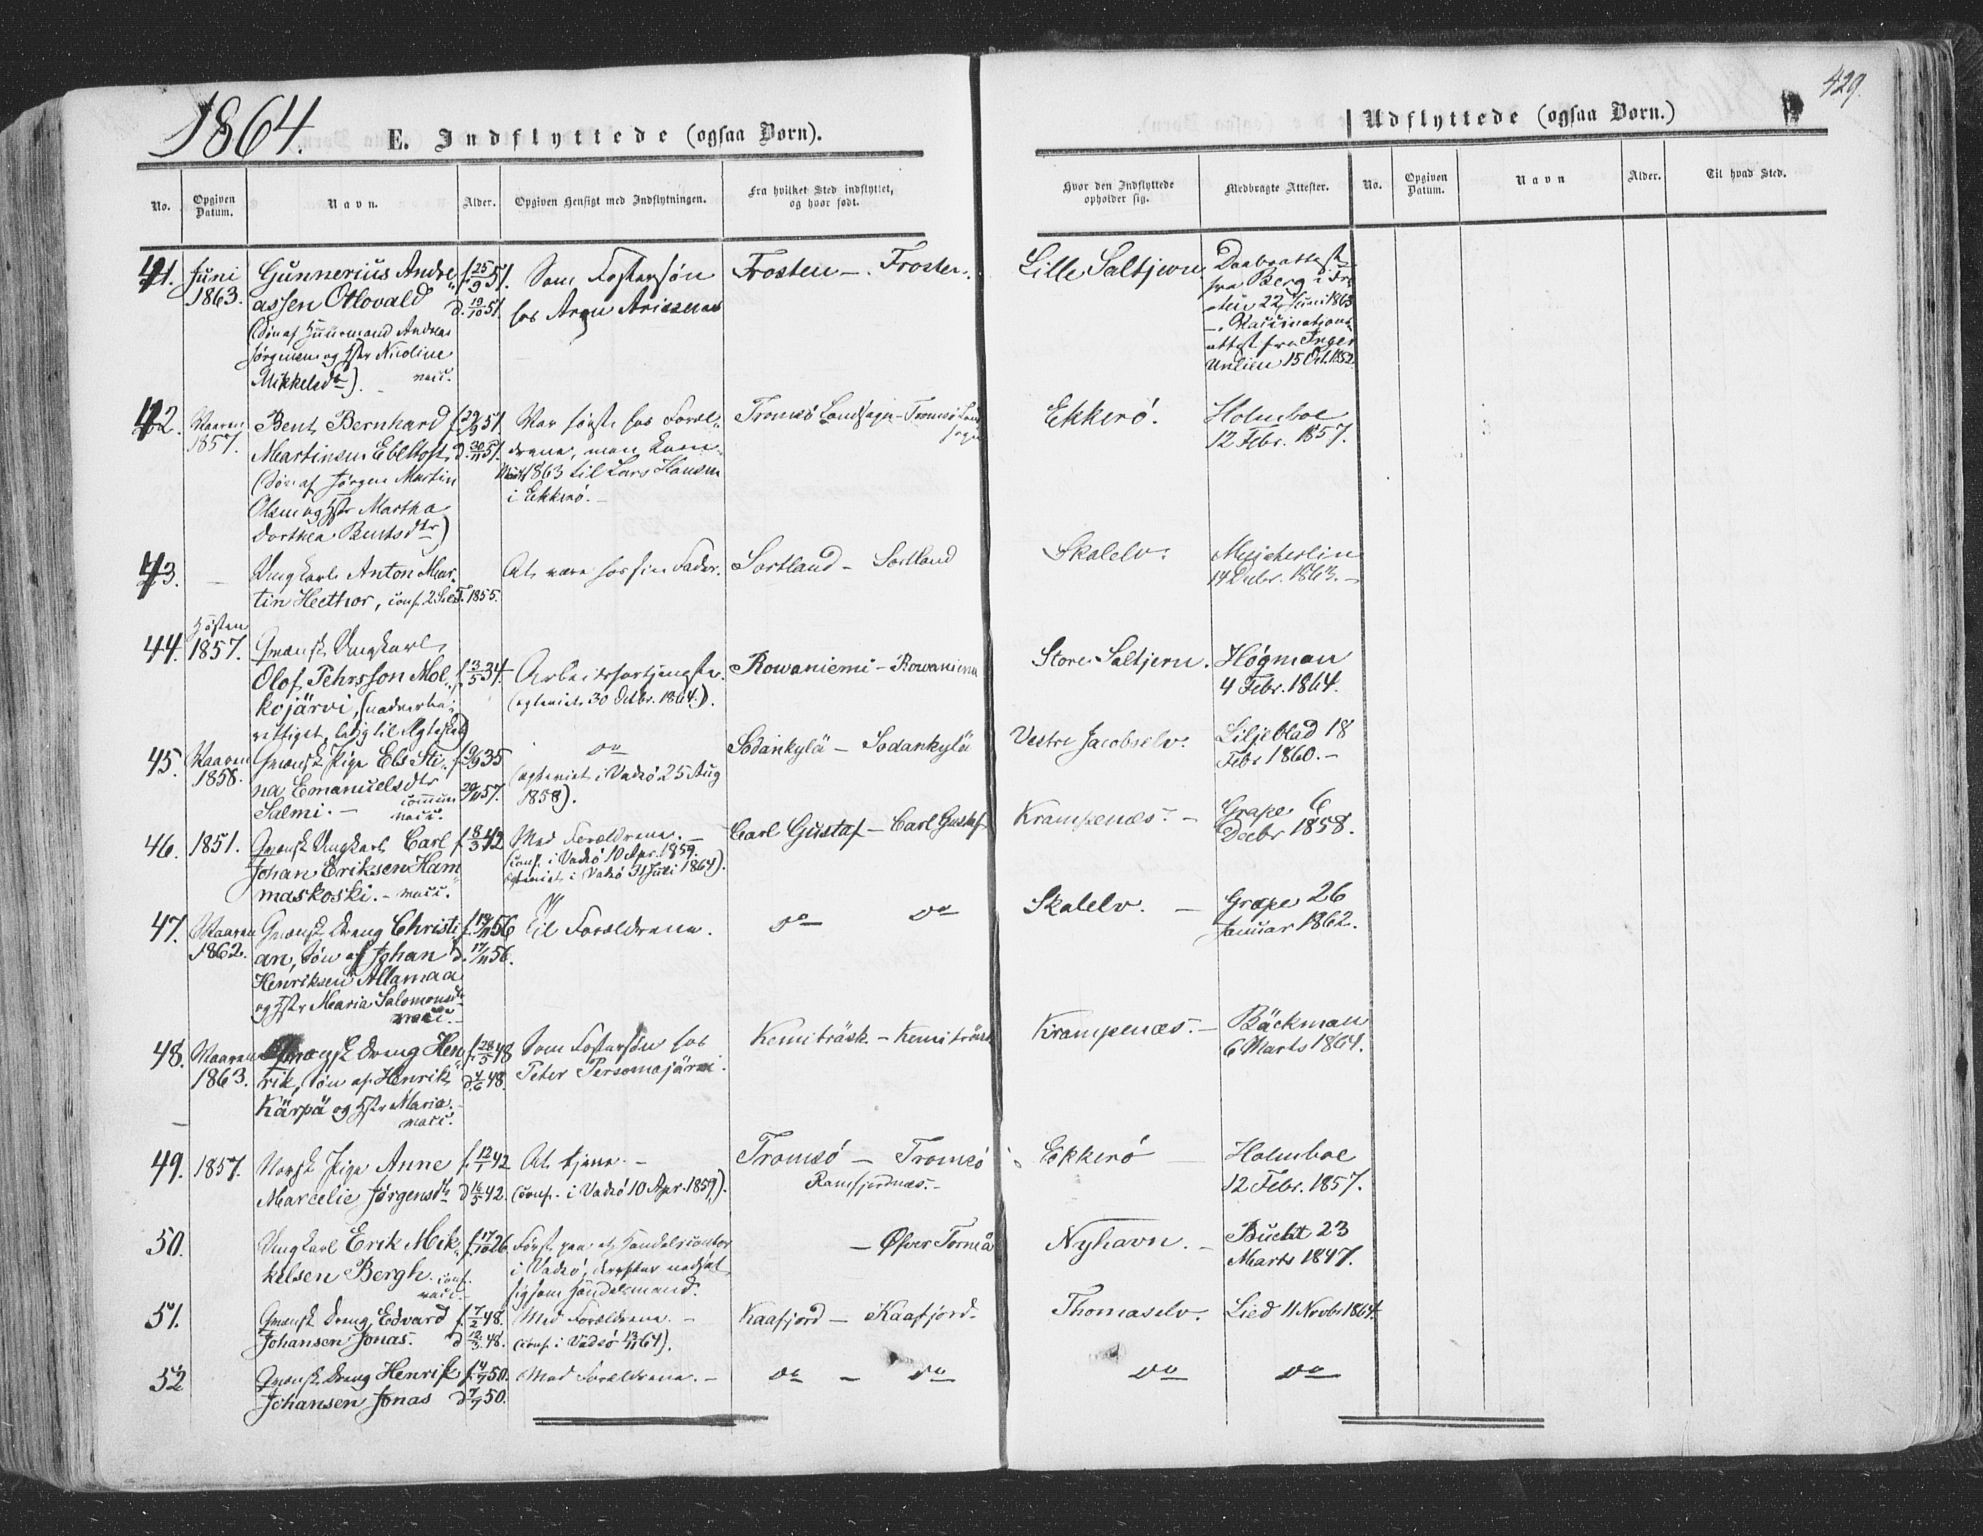 1864.
E. Indflyttede (ogsaa Børn).
Udflyttede (ogsaa Børn.)
429.
No. Opgiven Datum. Navn. Alder. Opgiven Hensigt med Indflytningen. Fra hvilket Sted indflyttet, og hvor født. Hvor den Indflyttede opholder sig. Medbragte Attester. No. Opgiven Datum. Navn Alder. Til hvad Sted.
41. Juni 1863.
Gunnerius Andre
assen Otlovald
(Søn af Huusmand Andreas
Jørgensen og Hstr Nicoline
Mikkelsdtr). vacc.
f. 25/9 51.
d. 19/10 51.
Som Fostersøn
hos Aron
Frosten - Frosten
Lille Saltjern
Daabsattest
fra Berg i Fro
sten 22 Juni 1863
- Vaccinations
attest fra Inger
Unlien 15 Oct. 1852.
42. Vaaren 1857.
Bent Bernhard
Martinsen Ebeltoft
(Søn af Jørgen Martin
Olsen og Hstr Martha
Dorthea Bentsdtr)
51.
d. 30/11 51.
Var først hos Foræl-
drene, men kom
1863 til Lars Hansen
i Ekkerö. -
Tromsö Landsogn - Tromsö Land
sogn
Ekkerö.
Holmboe
12 Febr. 1857.
43. -
Ungkarl Anton Mar-
tin Heethor, conf. 2 S. e. T. 1855.
At være hos sin Fader.
Sortland - Sortland
Skalelv.
14 Debr. 1863. -
44. Høsten 1857.
Qvænsk Ungkarl
Olof Pehrsson Mol
kojärvi, (nadverbe-
rettiget, ledig til Ægteskab)
f. 3/5 34.
Arbeidsfortjeneste.
(egteviet 30 Octbr. 1864.).
Rowaniemi - Rowaniemi
Store Saltjern.
Högman
4 Febr. 1864.
45. Vaaren 1858.
Qvænsk Pige Els Sti-
na Emanuelsdtr
Salmi. - commun.
vacc.
35
57.
do
(egteviet i Vadsö 25 Aug
1858).
Sodankylä - Sodankylä
Vestre Jacobselv.
Liljeblad 18
Febr 1860. -
46. 1851.
Qvænsk Ungkarl Carl
Johan Eriksen Ham
maskoski. - vacc.
f. 8/3 42
Med Forældrene. -
(conf. i Vadsö 10 Apr. 1859.
Egteviet i Vadsö 31 Juli 1864).
Carl Gustaf - Carl Gustaf
Krampenæs. -
Grape 6
Decbr 1858.
47. Vaaren 1862.
Qvænsk Dreng Christi
an, Søn af Johan
Henriksen Allamaa
og Hstr Maria Salomonsdtr
vacc. -
56
d. 17/11 56.
Til Forældrene.
do do
Skalelv. -
Grape 26
Januar 1862.
48. Vaaren 1863.
Qvænsk Dreng Hen
rik, Søn af Henrik
Kärpä og Hstr Maria. -
vacc.
f. 28/5 48
d. 4/6 48.
Som Fostersøn hos
Peter Persomajärvi.
Kemiträsk - Kemiträsk
Krampenæs. -
Bäckman
6 Marts 1864.
49. 1857.
Norsk Pige Anne
Marcelie Jørgensdtr
f. 12/1 42
d. 16/5 42.
At tjene. -
(conf. i Vadsö 10 Apr. 1859).
Tromsö - Tromsö
Ramfjordnæs. -
Ekkerö
Holmboe
12 Febr. 1857.
50.
Ungkarl Erik Mik
kelsen Bergh. conf.
vacc. -
f. 17/10 26
Først paa et Handelscontor
i Vadsö, derefter nedsat
sig som Handelsmand.
- Øfver Torneå
Nyhavn. -
Bucht 23
Marts 1847.
51.
Qvænsk Dreng Edvard
Johansen Jonas.
f. 7/2 48.
d. 12/3 48.
Med Forældrene. -
(conf. i Vadsö 13/11 64).
Kaafjord - Kaafjord.
Thomaselv.
Lied 11 Novbr 1864.
52
Qvænsk Dreng Henrik
Johansen Jonas
f. 4/7 50.
d. 7/7 50.
Med Forældrene. -
do - do
do
do